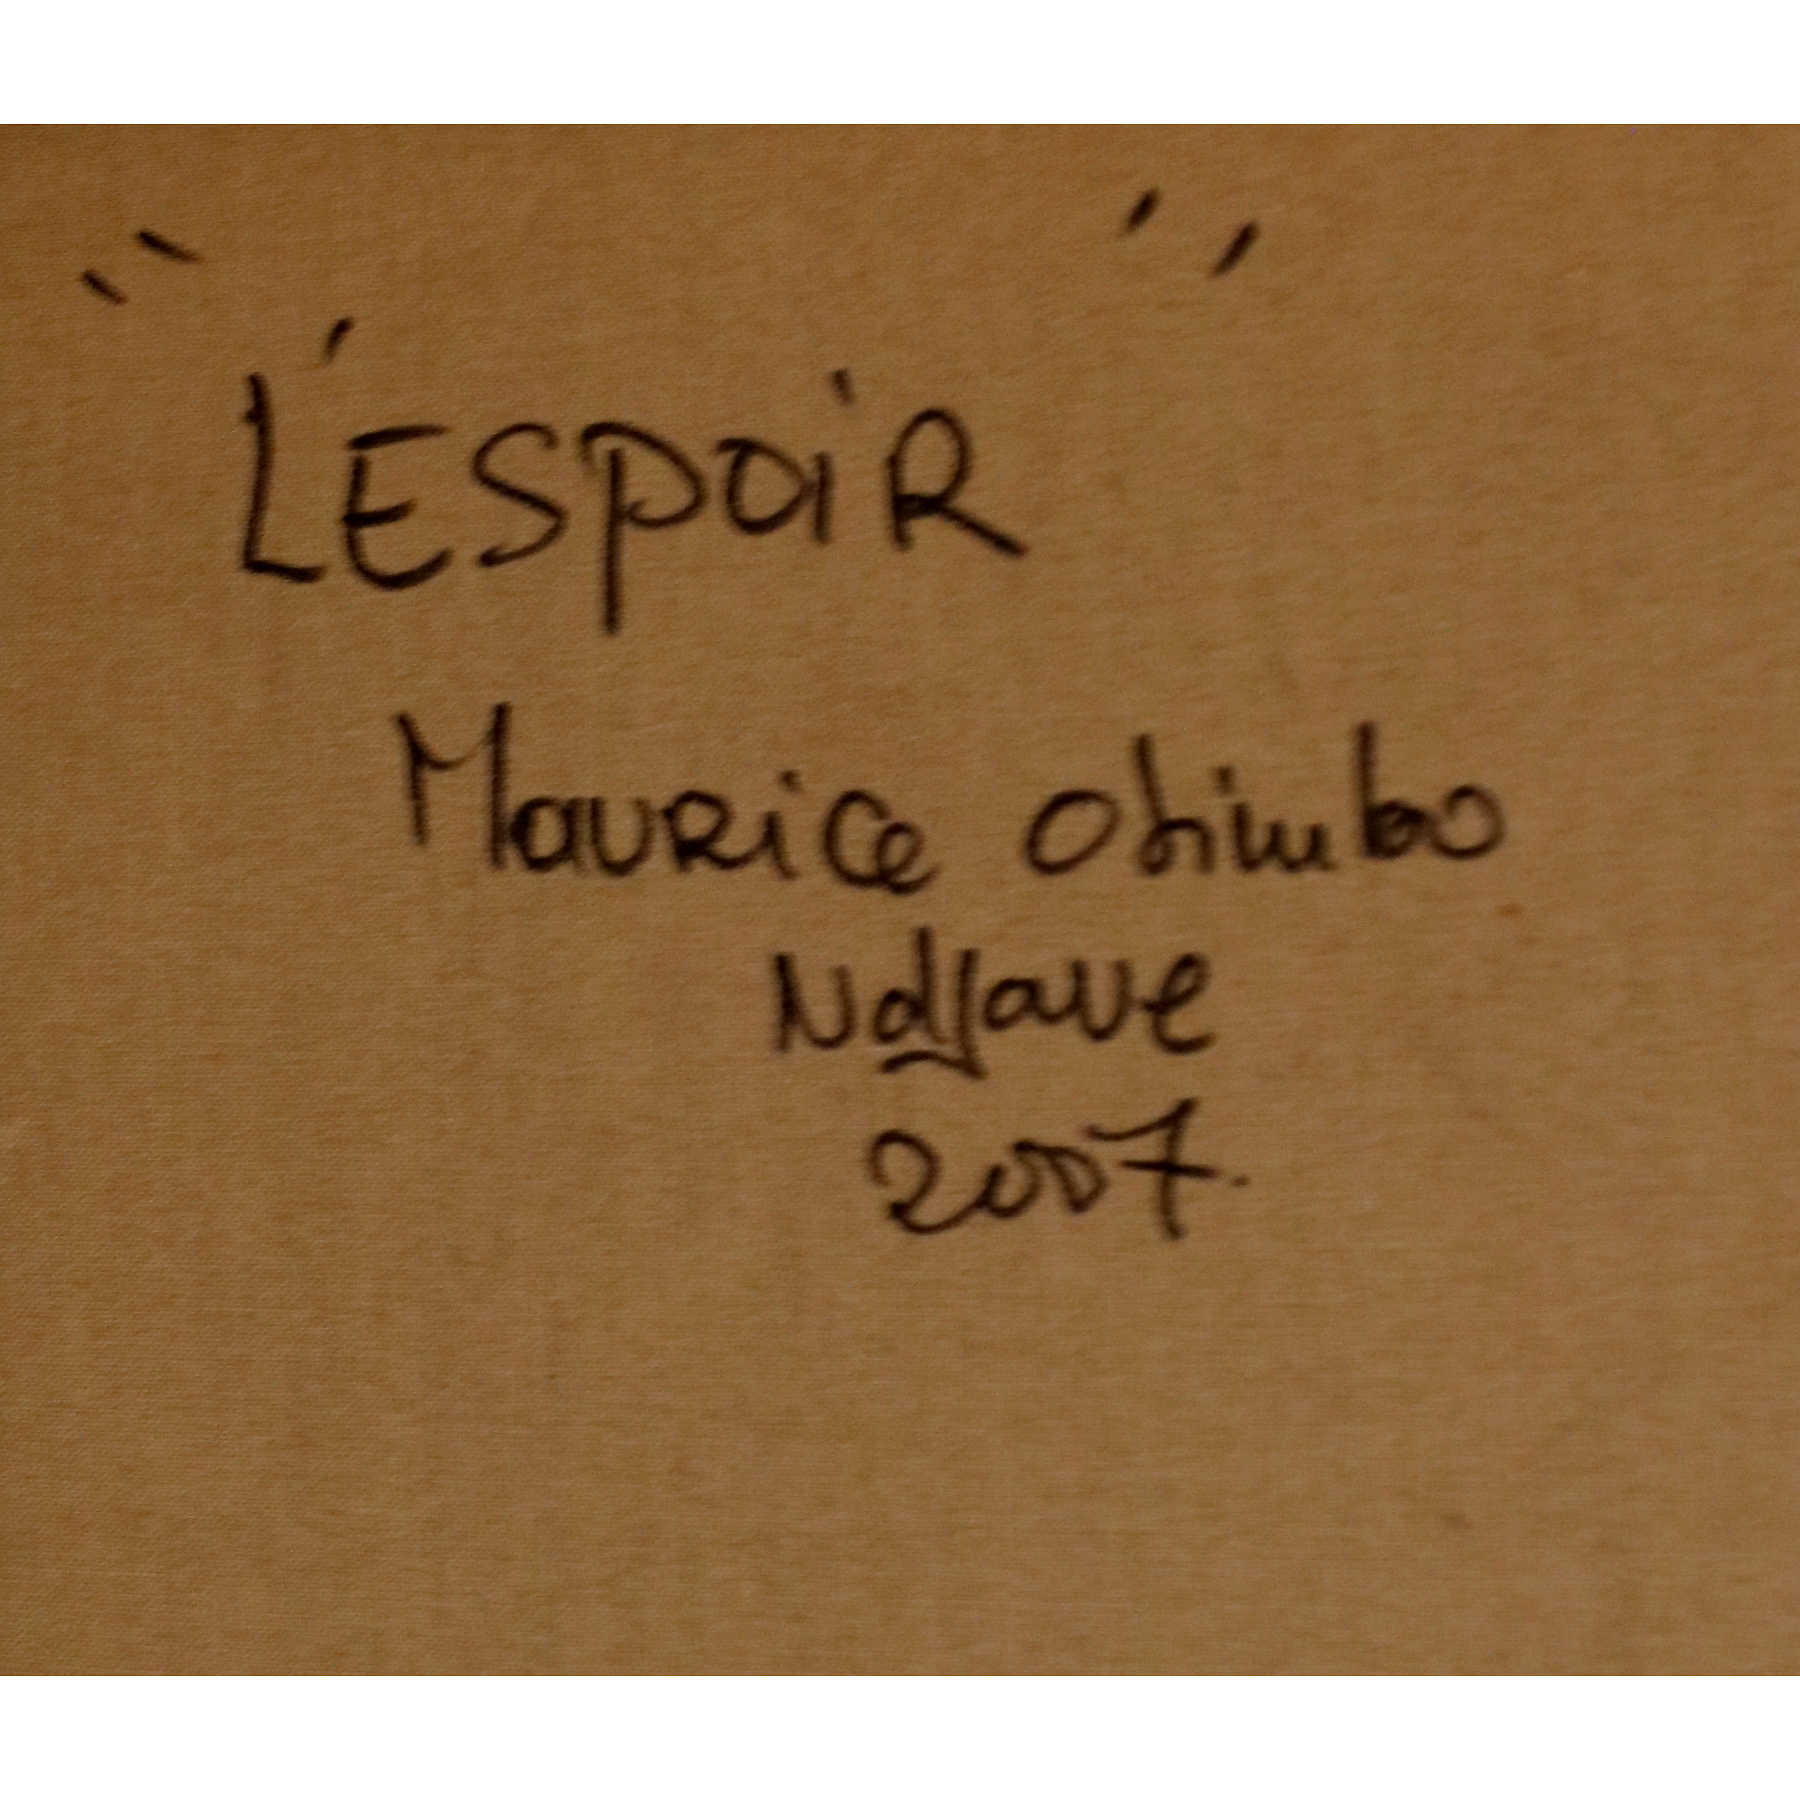 "L'ESPOiR"
MauRice Obimbo
Ndjave
2007.